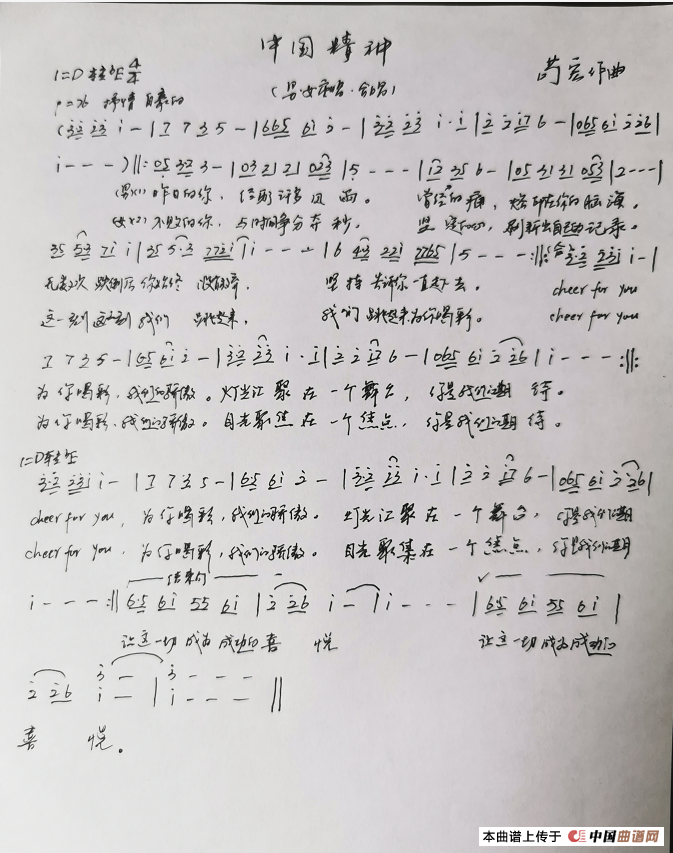 中国精神
1=D 转♭E 4/4
苟宏作曲
(男女 唱·合唱)
♩=76 抒情 自豪的
(3̇2̇ 2̇3̇ i - | 7 7 3 5 - | 665 6i 2̇ - | 3̇2̇ 2̇3̇ i · i | 2̇ 2̇ i7 6 - | 065 6i 2̇ 2̇6 |
i - - - ) ‖: 05 32 3 - | 03 21 21 023 | 5 - - - | i2̇ 35 6 - | 05 31 31 053 | 2 - - - |
(男)(1) 昨日的你, 经历许多风雨。 曾经的痛, 烙印在你的脑海。
女(2) 不败的你, 与时间争分夺秒。 坚定 心, 刷新出自己的记录。
35 53 7i i | 35 5·3 772̇i | i - - - | 6 43 22i 7765 | 5 - - - :‖: (合) 3̇·2̇ 2̇3̇i i - |
无数次 跌倒后 你始终 没放弃, 坚持 告诉你一直走下去。 cheer for you
这一刻 这一刻 我们 站起来, 我们 站起来为你喝彩。 cheer for you
7 7 3 5 - | 65 6i 2̇ - | 3̇2̇ 2̇3̇ i · i | 2̇ 2̇ i7 6 - | 065 6i 2̇ 2̇6 | i - - - :‖:
为你喝彩, 我们的骄傲。灯光汇聚在一个舞台, 你是我们的期待。
为你喝彩, 我们的骄傲。目光聚焦在一个焦点, 你是我们的期待。
1=D转♭E
3̇2̇ 2̇3̇i i - | 7 7 3 5 - | 65 6i 2̇ - | 3̇2̇ 2̇3̇ i · i | 2̇ 2̇ i7 6 - | 065 6i 2̇ 2̇6 |
cheer for you, 为你喝彩, 我们的骄傲。 灯光汇聚在一个舞台, 你是我们的期
cheer for you, 为你喝彩, 我们的骄傲。 目光聚集在一个焦点, 你是我们的期
结束句
i - - - :‖ 65 6i 55 6i | 2̇ 2̇6 i - | i - - - | 65 6i 55 6i |
让这一切成为成功的喜悦 让这一切成为成功的
2̇ 2̇6 3̇ - | 3̇ - - - ‖
i - | i - - -
喜悦。
本曲谱上传于 中国曲谱网